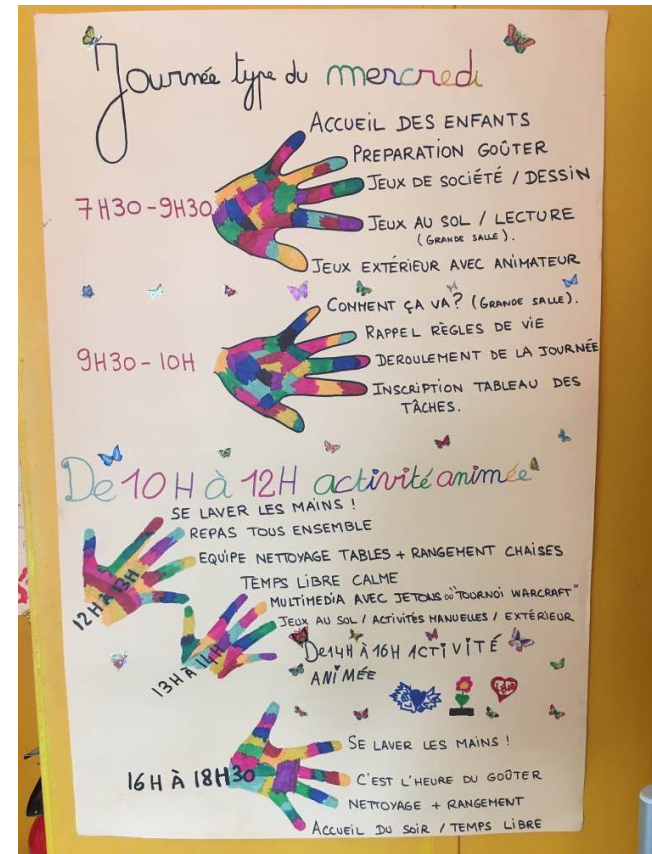 Journée type du mercredi
ACCUEIL DES ENFANTS
PREPARATION GOÛTER
JEUX DE SOCIÉTÉ / DESSIN
7H30-9H30
JEUX AU SOL / LECTURE
(GRANDE SALLE).
JEUX EXTÉRIEUR AVEC ANIMATEUR
COMMENT ÇA VA? (GRANDE SALLE).
RAPPEL RÈGLES DE VIE
9H30-10H
DEROULEMENT DE LA JOURNÉE
INSCRIPTION TABLEAU DES
TÂCHES.
De 10H à 12H activité animée
SE LAVER LES MAINS !
REPAS TOUS ENSEMBLE
EQUIPE NETTOYAGE TABLES + RANGEMENT CHAISES
12H À 13H
TEMPS LIBRE CALME
MULTIMEDIA AVEC JETONS OU "TOURNOI WARCRAFT"
JEUX AU SOL / ACTIVITÉS MANUELLES / EXTÉRIEUR
13H À 14H
De 14H À 16H ACTIVITÉ
ANIMÉE
SE LAVER LES MAINS !
16H À 18H30
C'EST L'HEURE DU GOÛTER
NETTOYAGE + RANGEMENT
ACCUEIL DU SOIR / TEMPS LIBRE